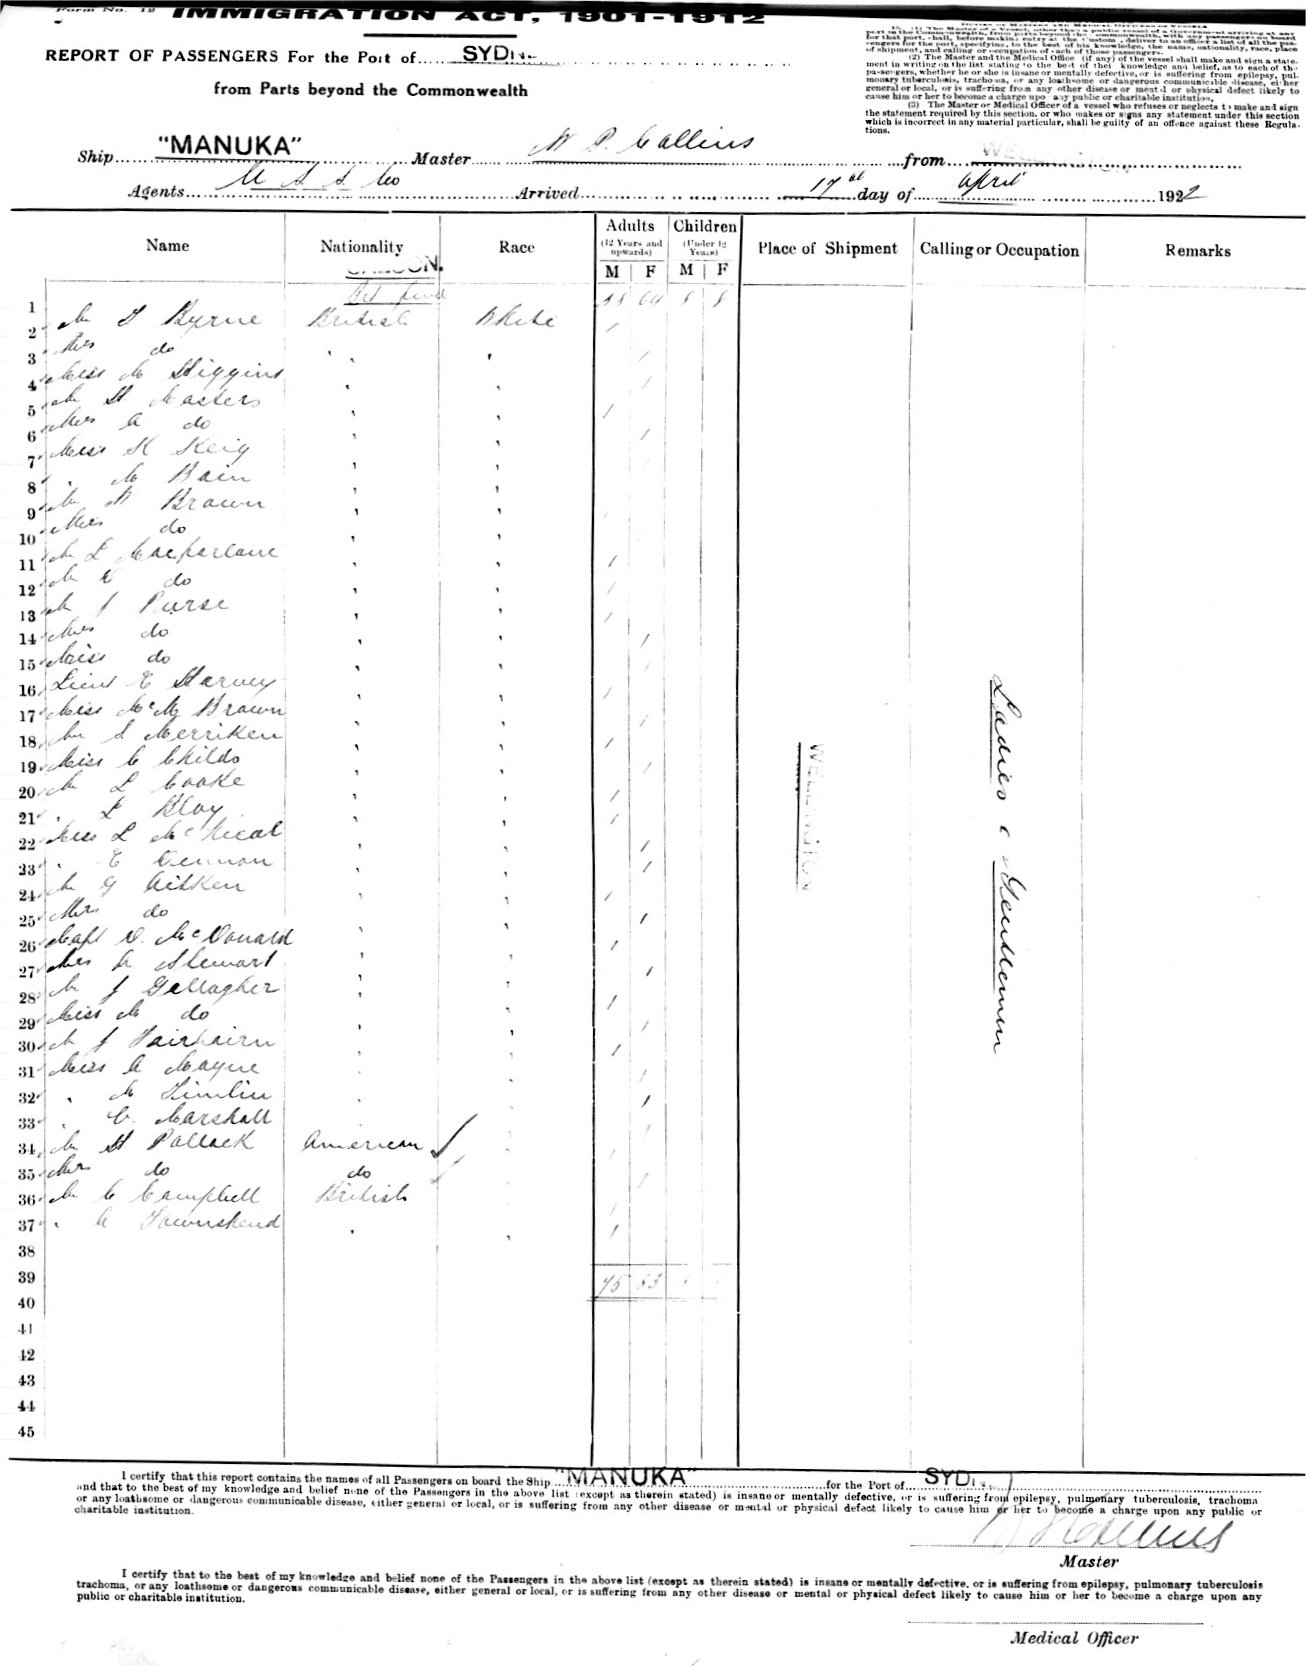 Form No. 12 IMMIGRATION ACT, 1901-1912
REPORT OF PASSENGERS For the Port of SYDN
from Parts beyond the Commonwealth
(2) The Master and the Medical Officer (if any) of the vessel shall make and sign a statement in writing on the list stating to the best of their knowledge and belief, as to each of the passengers, whether he or she is insane or mentally defective, or is suffering from epilepsy, pulmonary tuberculosis, trachoma, or any loathsome or dangerous communicable disease, either general or local, or is suffering from any other disease or mental or physical defect likely to cause him or her to become a charge upon any public or charitable institution.
(3) The Master or Medical Officer of a vessel who refuses or neglects to make and sign the statement required by this section, or who makes or signs any statement under this section which is incorrect in any material particular, shall be guilty of an offence against these Regulations.
Ship "MANUKA" Master W P Collins from WELLINGTON
Agents U S S Co Arrived 17th day of April 1922
Name Nationality Race Adults (12 Years and upwards) M F Children (Under 12 Years) M F Place of Shipment Calling or Occupation Remarks
SALOON.
1 Mr Byrne British White
2 Mrs do
3 Miss M Higgins
4 Mr H Masters
5 Mrs A do
6 Miss K Keig
7 " M Bain
8 Mr Brown
9 Mrs do
10 Mr L Macfarlane
11 Mr do
12 Mr J Purse
13 Mrs do
14 Miss do
15 Lieut E Harvey
16 Miss McM Brown
17 Mr S Merriken
18 Miss C Childs
19 Mr L Cooke
20 " L Bloy
21 Miss L McNicol
22 " E Dennon
23 Mr G Aitken
24 Mrs do
25 Capt D. McDonald
26 Mrs A Stewart
27 Mr J Gallagher
28 Miss M do
29 Mr J Fairbairn
30 Miss A Mayne
31 " M Timlin
32 " C. Marshall
33 Mr H Pollack American
34 Mrs do do
35 Mr C Campbell British
36 " A Townshend
37
38
39 45 53
40
41
42
43
44
45
WELLINGTON
Ladies & Gentlemen
I certify that this report contains the names of all Passengers on board the Ship "MANUKA" for the Port of SYDN
and that to the best of my knowledge and belief none of the Passengers in the above list (except as therein stated) is insane or mentally defective, or is suffering from epilepsy, pulmonary tuberculosis, trachoma
or any loathsome or dangerous communicable disease, either general or local, or is suffering from any other disease or mental or physical defect likely to cause him or her to become a charge upon any public or
charitable institution.
W P Collins
Master
I certify that to the best of my knowledge and belief none of the Passengers in the above list (except as therein stated) is insane or mentally defective, or is suffering from epilepsy, pulmonary tuberculosis
trachoma, or any loathsome or dangerous communicable disease, either general or local, or is suffering from any other disease or mental or physical defect likely to cause him or her to become a charge upon any
public or charitable institution.
Medical Officer